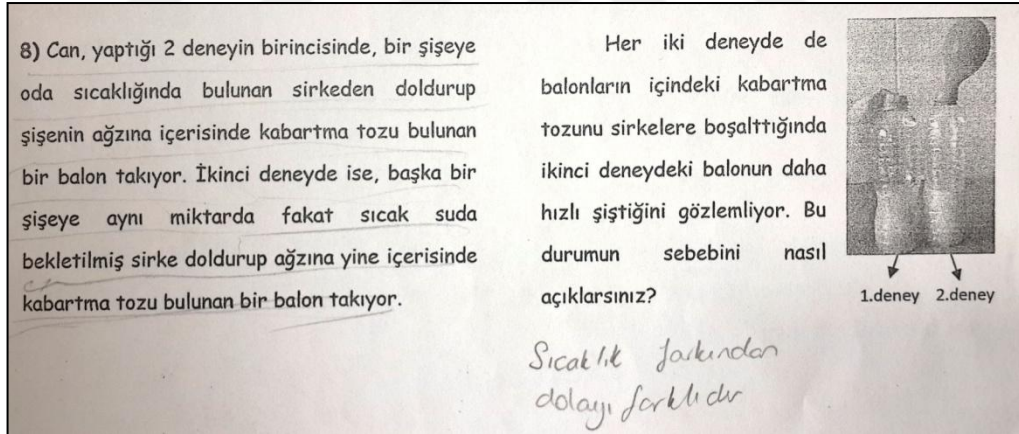 8) Can, yaptığı 2 deneyin birincisinde, bir şişeye
oda sıcaklığında bulunan sirkeden doldurup
şişenin ağzına içerisinde kabartma tozu bulunan
bir balon takıyor. İkinci deneyde ise, başka bir
şişeye aynı miktarda fakat sıcak suda
bekletilmiş sirke doldurup ağzına yine içerisinde
kabartma tozu bulunan bir balon takıyor.
Her iki deneyde de
balonların içindeki kabartma
tozunu sirkelere boşalttığında
ikinci deneydeki balonun daha
hızlı şiştiğini gözlemliyor. Bu
durumun sebebini nasıl
açıklarsınız?
1.deney 2.deney
Sıcaklık farkından
dolayı farklıdır